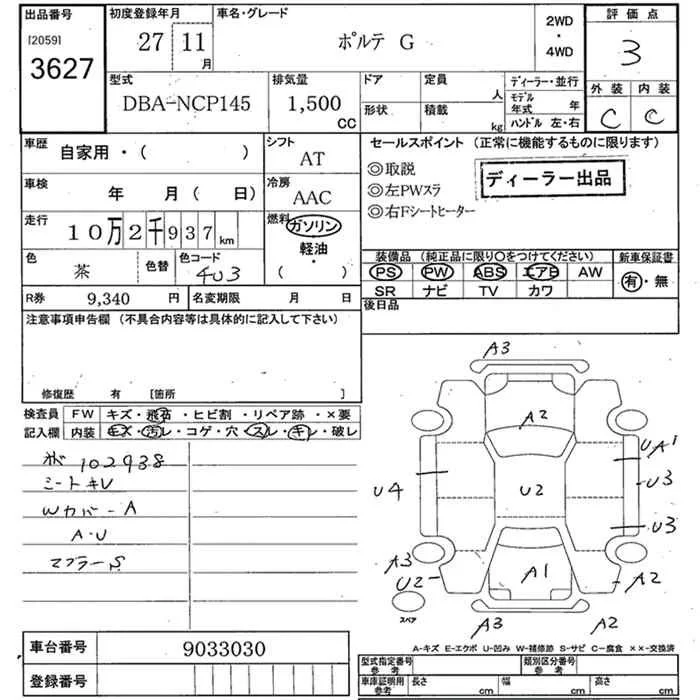 出品番号 初度登録年月 車名・グレード 2WD・4WD 評価点
[2059] 3627 27 11月 ポルテ G 3
型式 排気量 ドア 定員 人 ディーラー・並行 外装 内装
DBA-NCP145 1,500 CC 形状 積載 kg モデル年式 年 ハンドル 左・右 C C
車歴 自家用・( ) シフト AT セールスポイント (正常に機能するものに限ります)
◎取説
◎左PWスラ
◎右Fシートヒーター
ディーラー出品
車検 年 月 ( 日) 冷房 AAC
走行 10万2千937km 燃料 ガソリン 軽油・( )
色 茶 色替 色コード 403
装備品 (純正品に限り○をつけてください) 新車保証書
PS PW ABS エアB AW 有・無
SR ナビ TV カワ
R券 9,340 円 名変期限 月 日 後日品
注意事項申告欄 (不具合内容等は具体的に記入して下さい)
修復歴 有 [箇所 ]
検査員 FW キズ・飛石・ヒビ割・リペア跡・×要
記入欄 内装 キズ・汚レ・コゲ・穴・スレ・キレ・破レ
102938
シートキレ
Wカバー A
A・U
マフラーS
A3
A2
UA1
U4 U2 U3
U3
A3
U2 A1 A2
スペア
A3 A2
車台番号 9033030
登録番号
A-キズ E-エクボ U-凹み W-補修跡 S-サビ C-腐食 ××-交換済
型式指定番号 参考 類別区分番号 参考
車庫証明用 参考 長さ cm 幅 cm 高さ cm